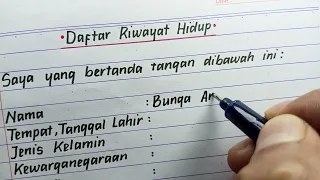 • Daftar Riwayat Hidup •
Saya yang bertanda tangan dibawah ini :
Nama : Bunga An
Tempat, Tanggal Lahir :
Jenis Kelamin :
Kewarganegaraan :